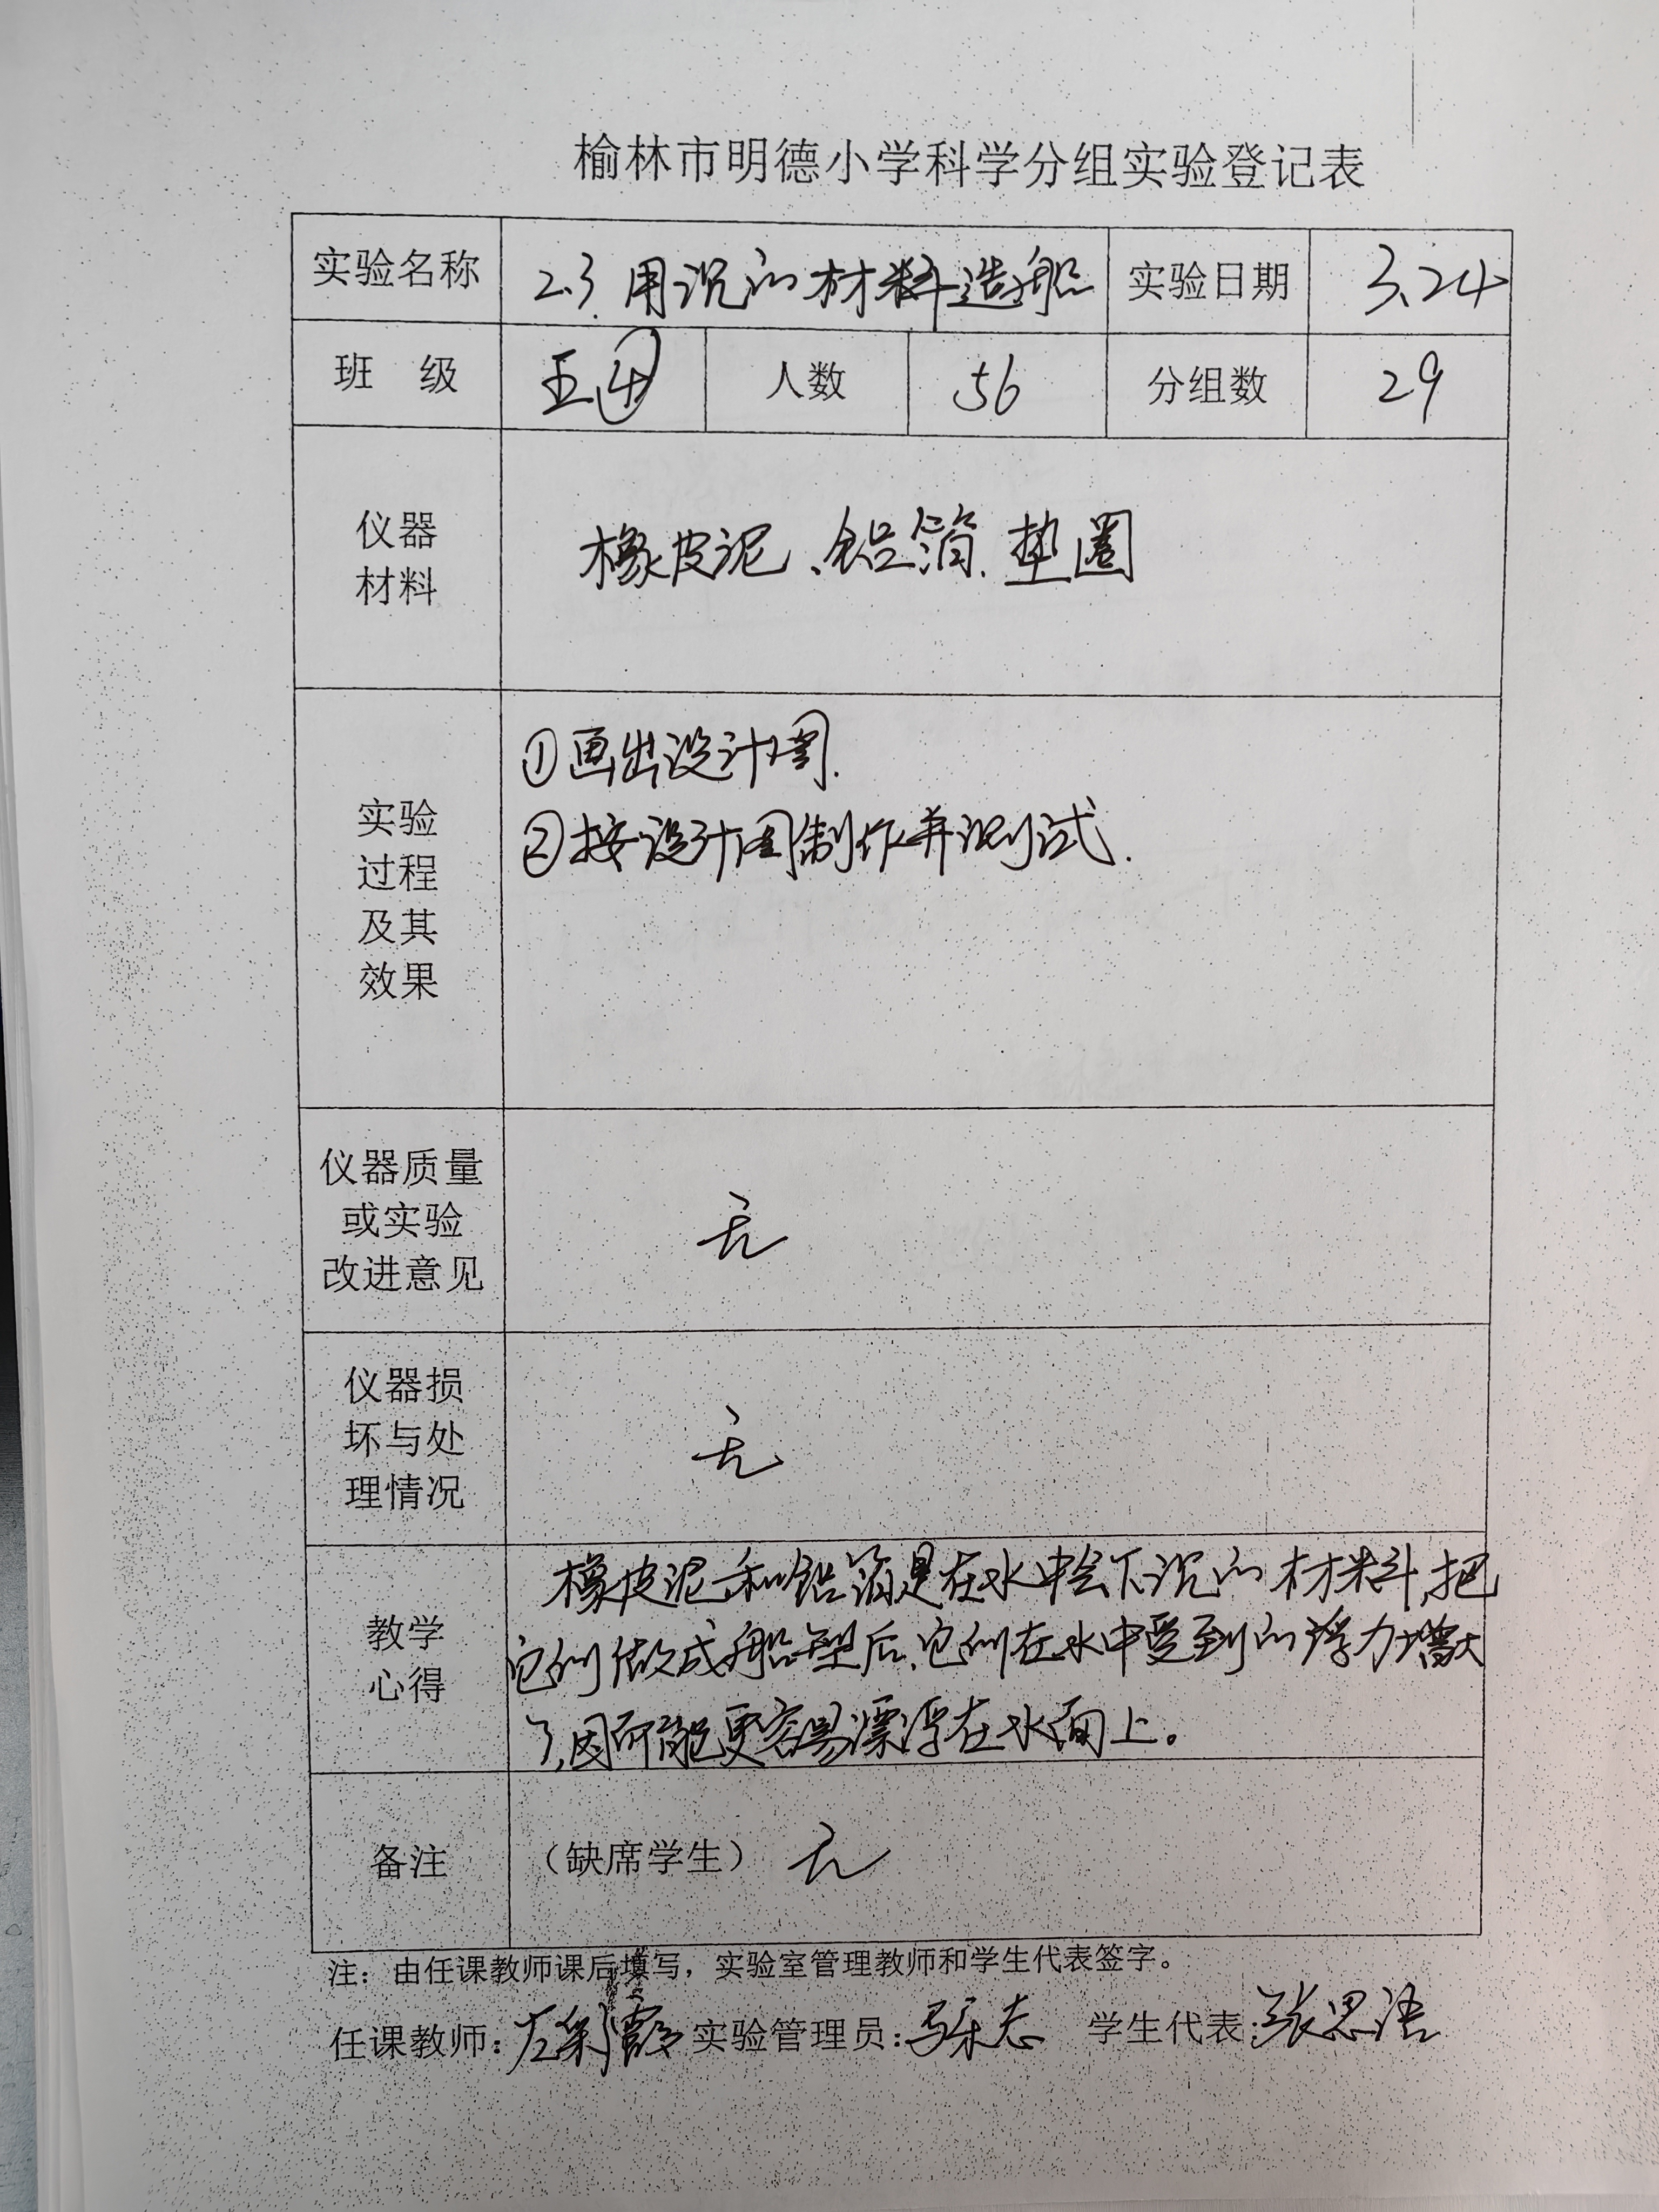 榆林市明德小学科学分组实验登记表
实验名称 2.3.用沉的材料造船 实验日期 3.24
班 级 五(4) 人数 56 分组数 29
仪器
材料
橡皮泥、铝箔、垫圈
实验
过程
及其
效果
①画出设计图.
②按设计图制作并测试.
仪器质量
或实验
改进意见
无
仪器损
坏与处
理情况
无
教学
心得
橡皮泥和铝箔是在水中会下沉的材料,把
它们做成船型后,它们在水中受到的浮力增大
了,因而能更容易漂浮在水面上。
备注 (缺席学生) 无
注：由任课教师课后填写，实验室管理教师和学生代表签字。
任课教师：左彩霞 实验管理员： 学生代表:张思语